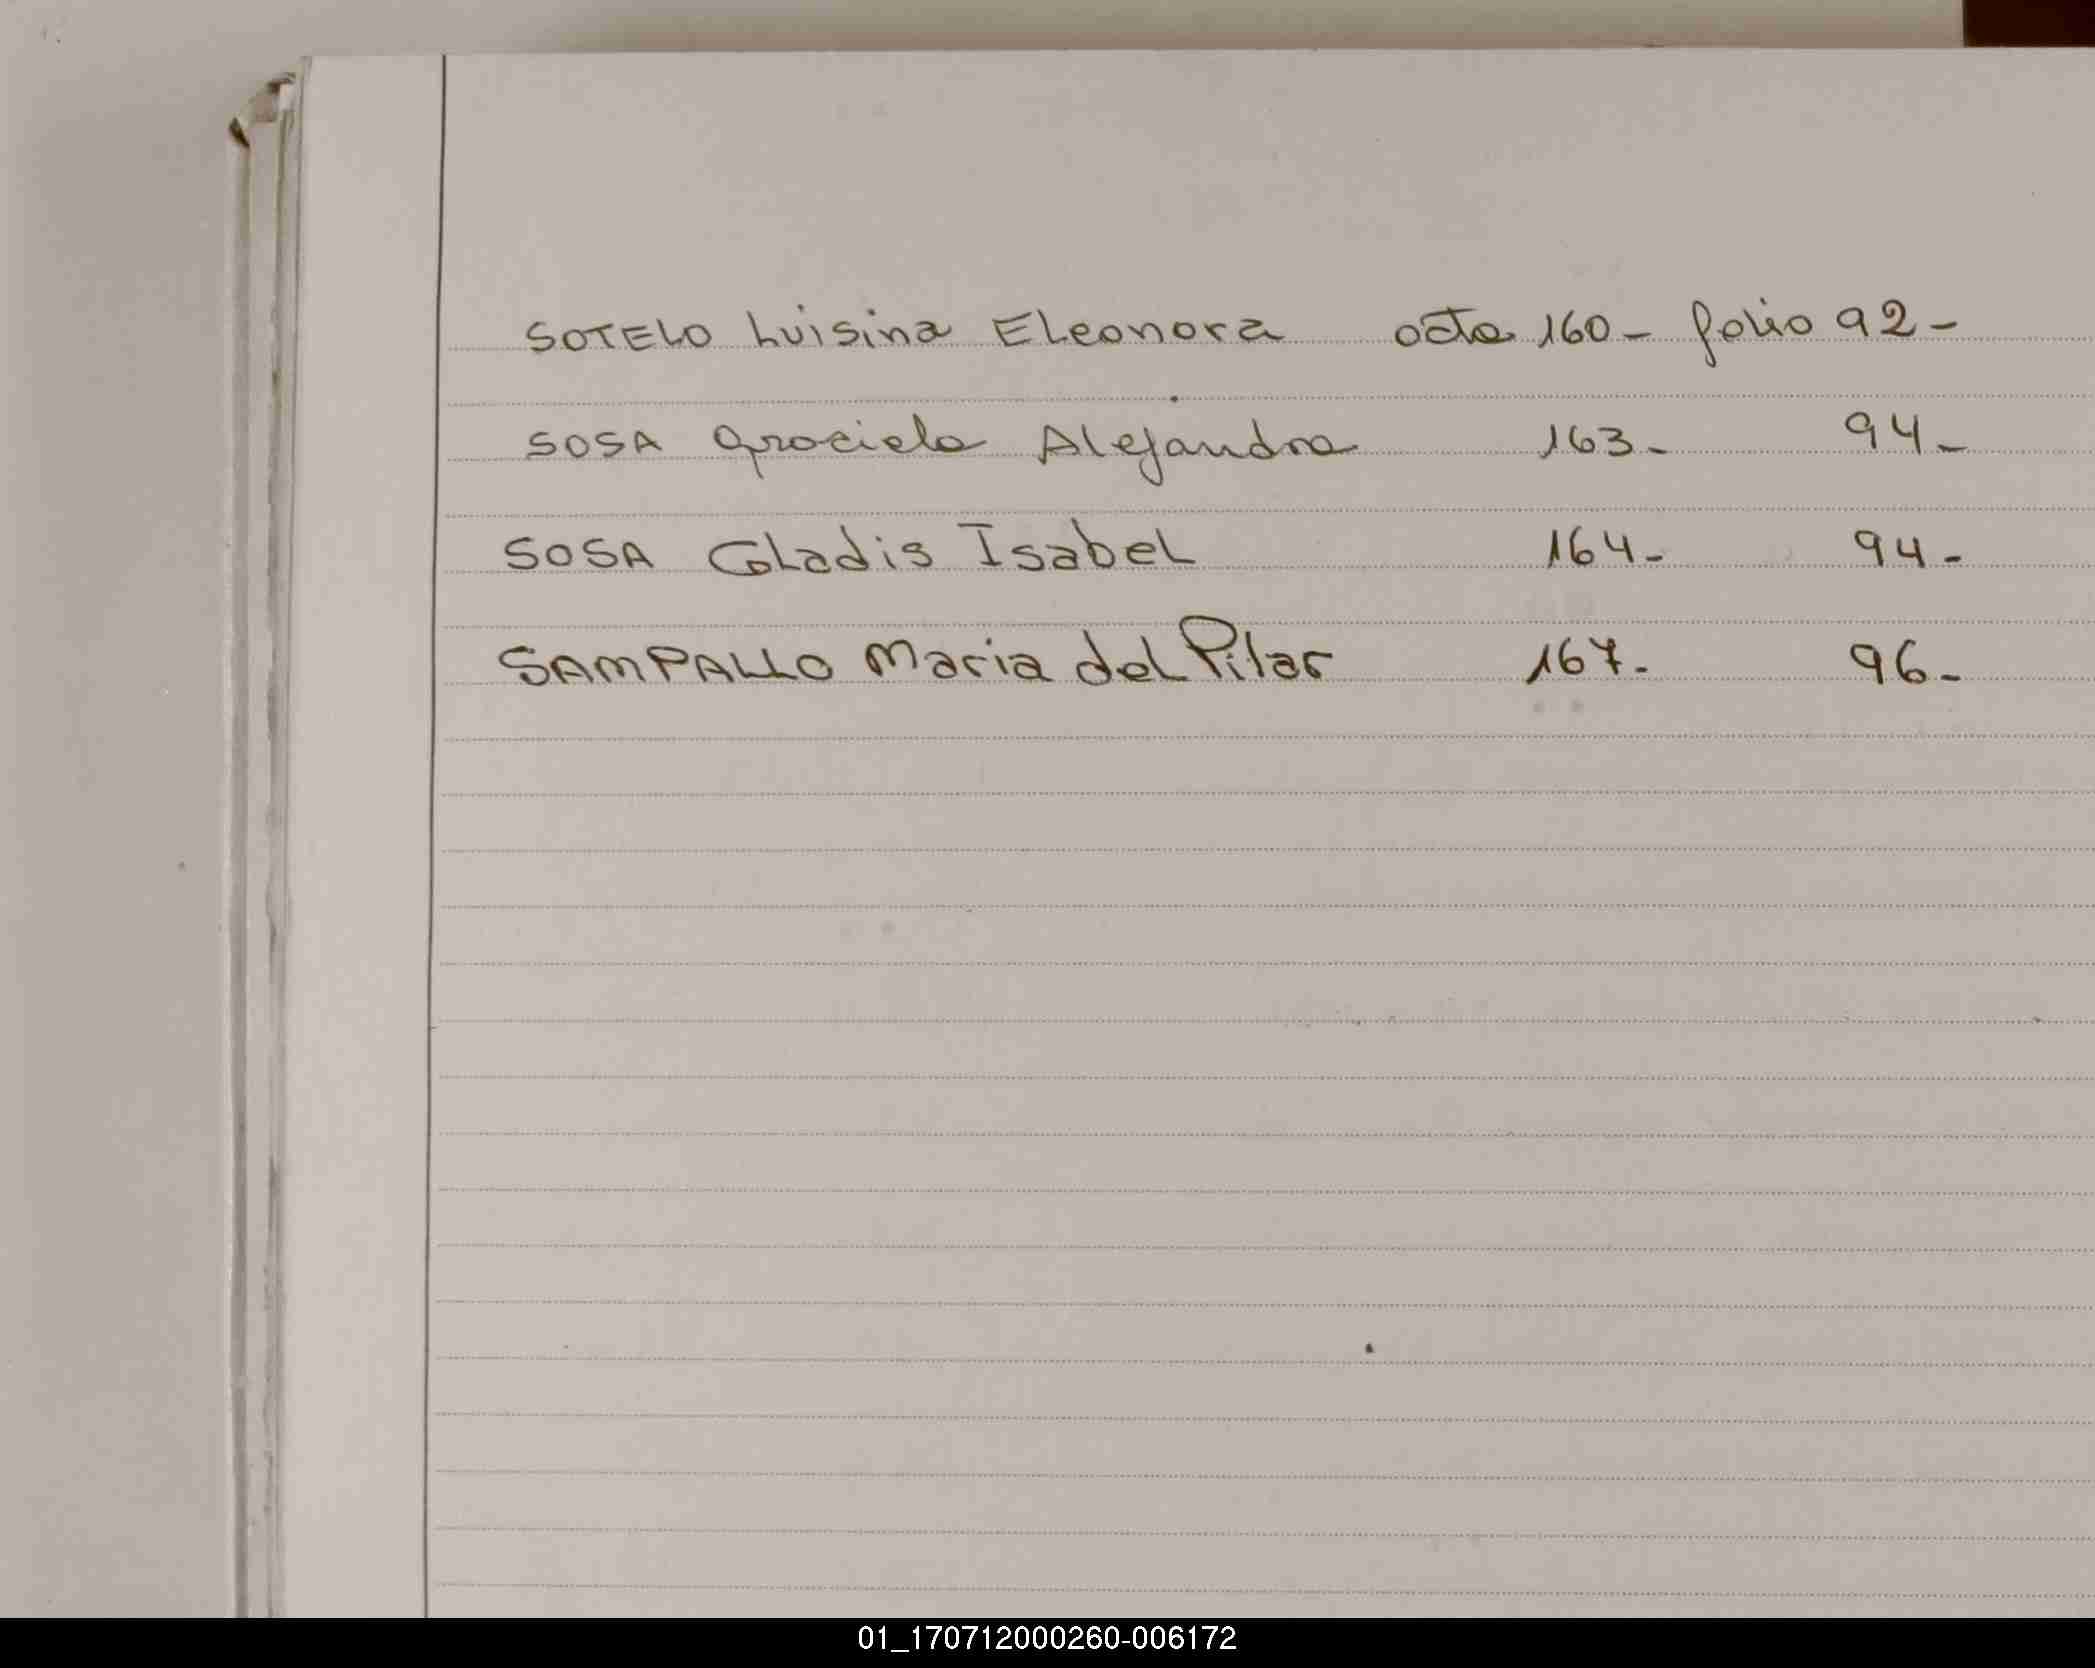 SOTELO Luisina Eleonora acta 160- folio 92-
SOSA Graciela Alejandra 163- 94-
SOSA Gladis Isabel 164- 94-
SAMPALLO Maria del Pilar 167- 96-
01_170712000260-006172